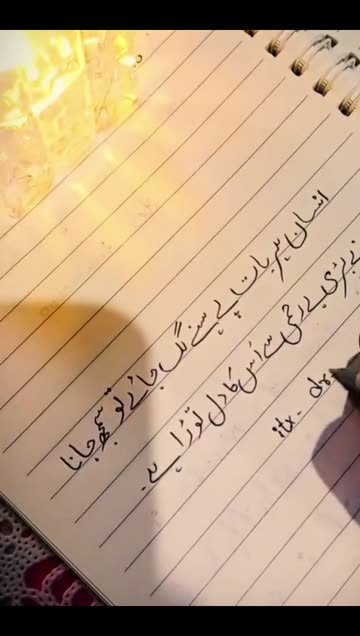 انسان ہر بات پے ہسنے لگ جائے تو سمجھ جانا
نے بڑی بے رحمی سے اُس کا دل توڑا ہے۔
itx-